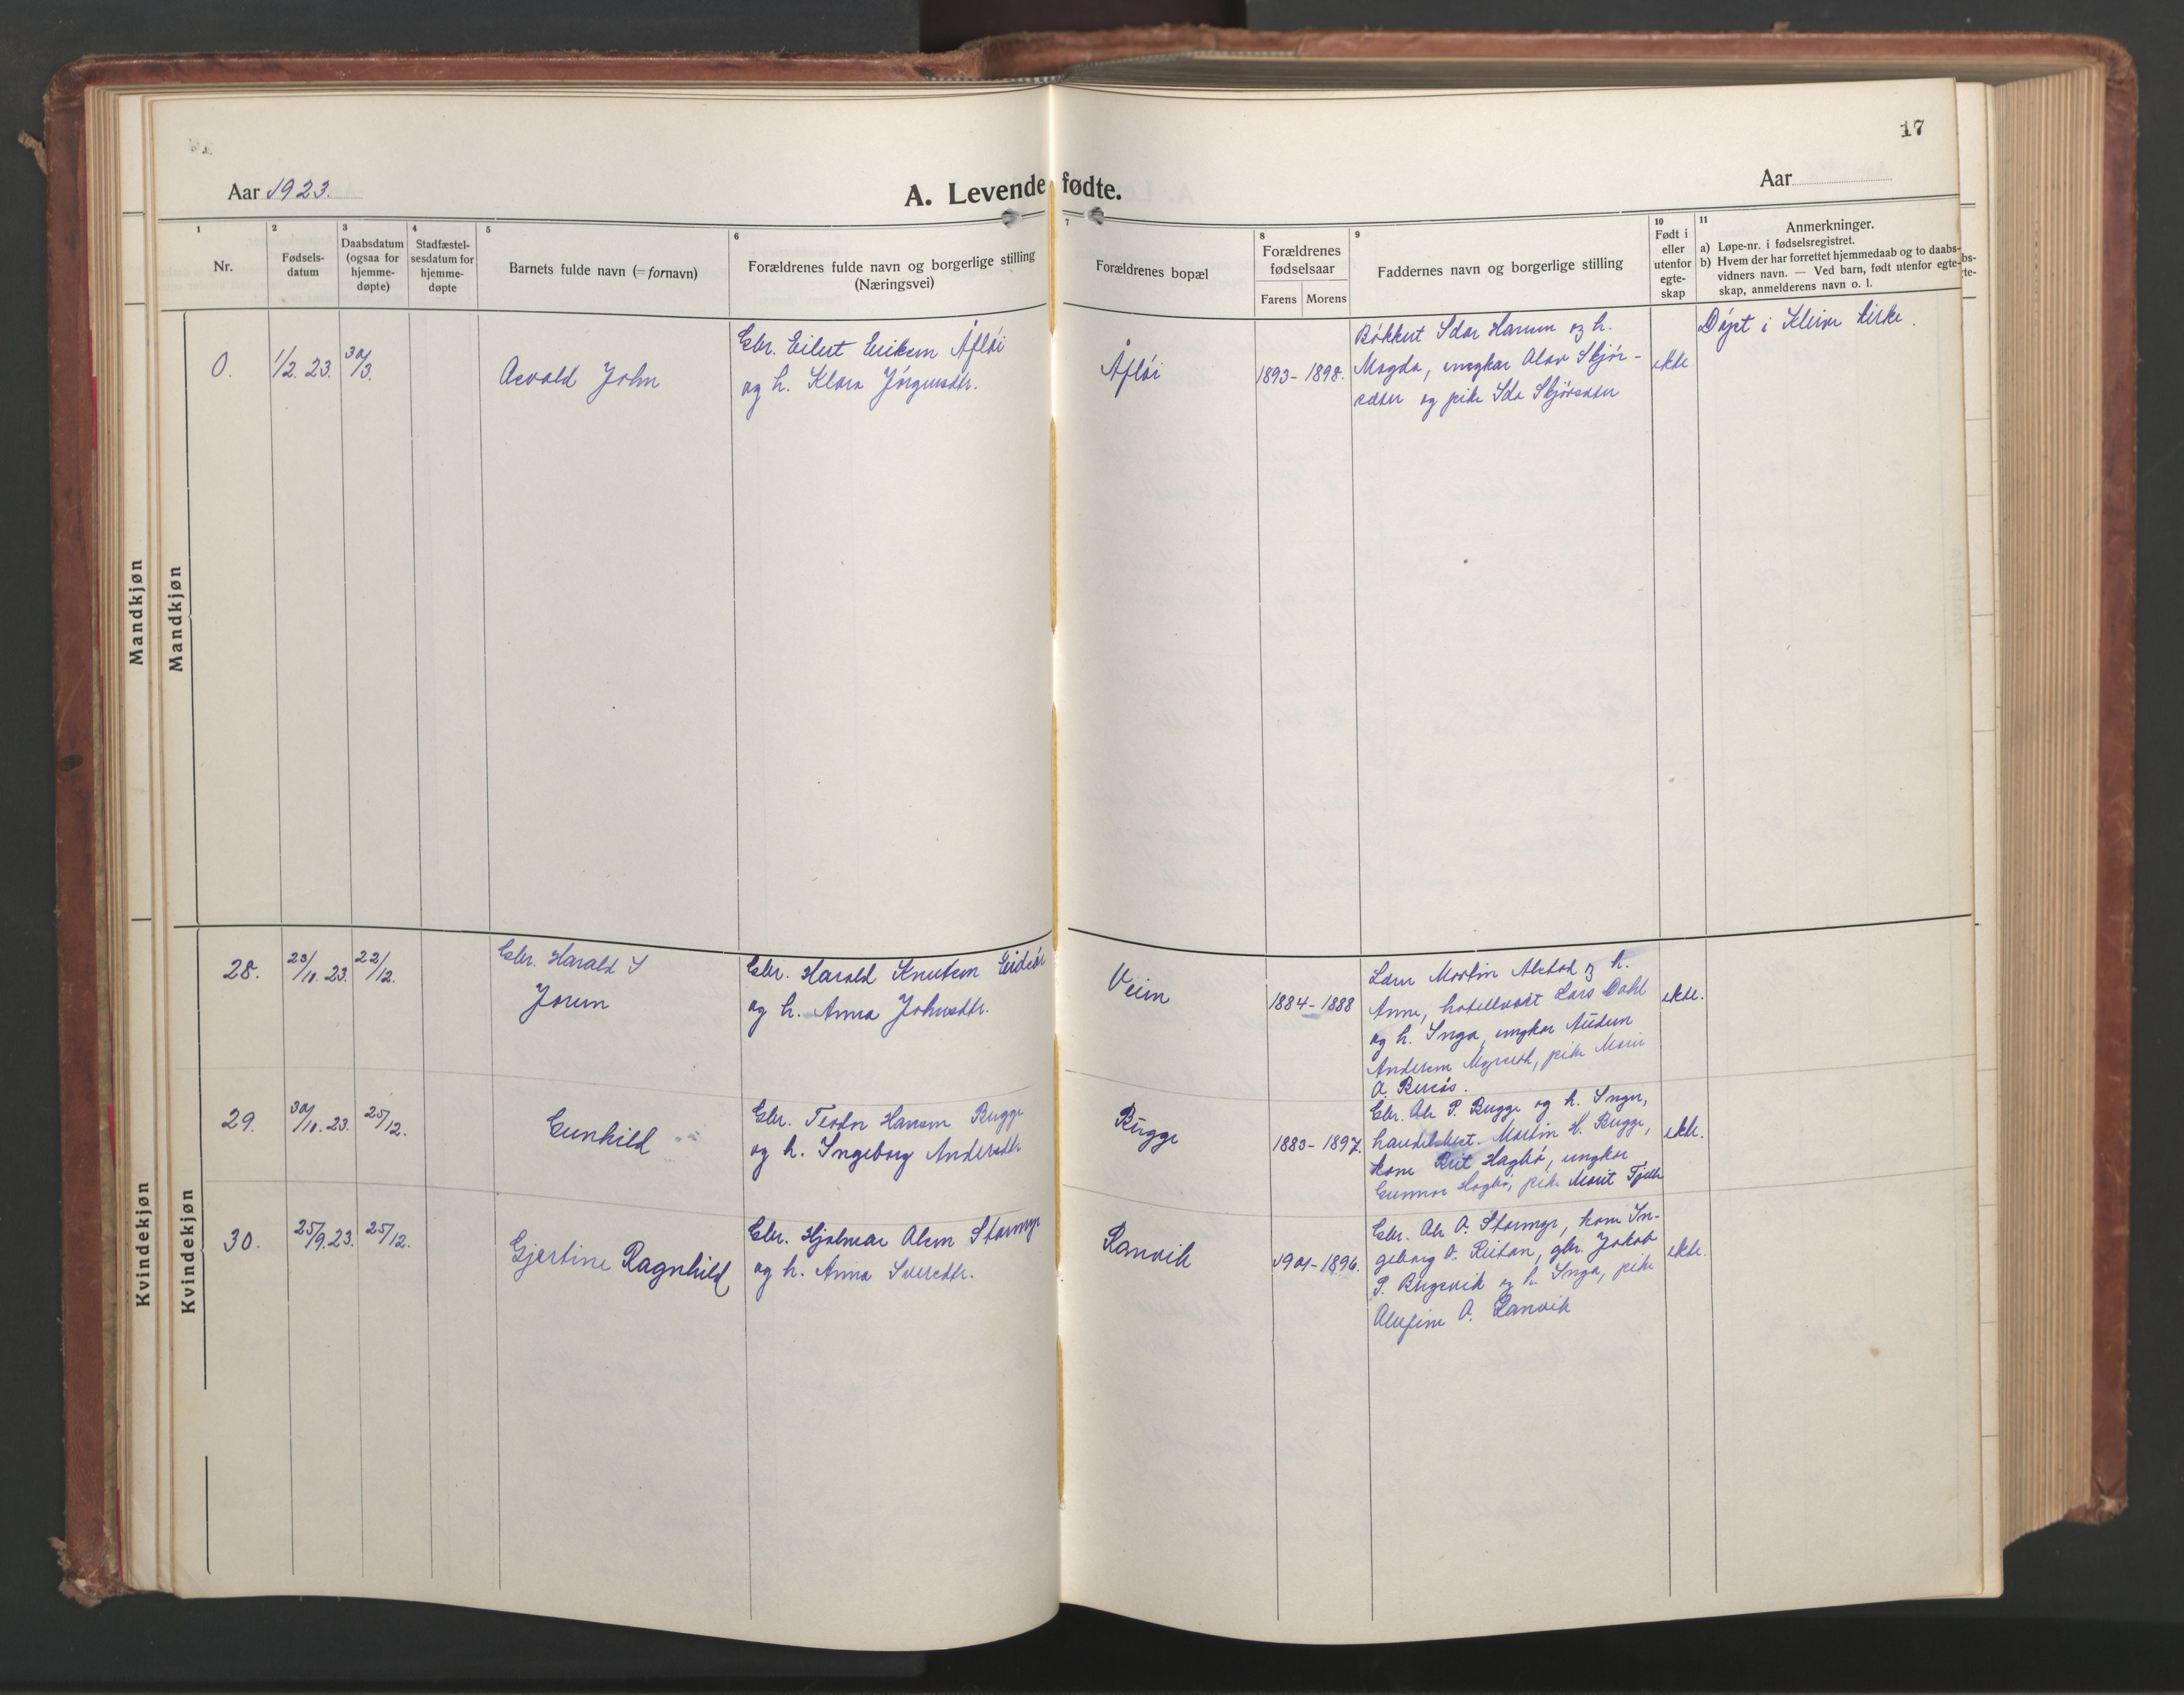 17
Aar 1923.
A. Levende fødte.
Aar
1
2
3
4
5
6
7
8
9
10
11
Nr.
Fødsels-
datum
Daabsdatum
(ogsaa for
hjemme-
døpte)
Stadfæstel-
sesdatum for
hjemme-
døpte
Barnets fulde navn (=fornavn)
Forældrenes fulde navn og borgerlige stilling
(Næringsvei)
Forældrenes bopæl
Forældrenes
fødselsaar
Farens Morens
Faddernes navn og borgerlige stilling
Født i
eller
utenfor
egte-
skap
Anmerkninger.
a) Løpe-nr. i fødselsregistret.
b) Hvem der har forrettet hjemmedaab og to daabs-
vidners navn. — Ved barn, født utenfor egte-
skap, anmelderens navn o. l.
bs-
te-
Mandkjøn
Mandkjøn
0.
1/2. 23.
30/3.
Asvald John
Gbr. Eilert Eriksen Åfløi
og h. Klara Jørgensdtr.
Åfløi
1893 - 1898.
Idar Hansen og h.
Magda, ungkar Olav Skjør-
sæter og pike Ida Skjørsæter
ekte
Døpt i Kleive kirke.
Kvindekjøn
Kvindekjøn
28.
23/11. 23.
22/12.
Gbr. Harald I
Jorun
Gbr. Harald Knutsen
og h. Anna Johnsdtr.
1884 - 1888
Martin Alstad og h.
Anne, hotellvært Lars Dahl
og h. Inga, ungkar Audun
Andersen pike
A.
ekte.
29.
30/11. 23.
25/12.
Gunhild
Gbr. Teodor Hansen Bugge
og h. Ingeborg Andersdtr
Bugge
1883 - 1897.
Gbr. Ole P. Bugge og h. Inger,
Martin H. Bugge,
kone Brit Hagbø, ungkar
Gunnar Hagbø, pike Marit
ekte.
30.
25/9. 23.
25/12.
Gjertine Ragnhild
Gbr. Hjalmar Olsen Stormyr
og h. Anna Sversdtr.
Ranvik
1901 - 1896.
Gbr. Ole O. Stormyr, kone In-
geborg O. Reitan, gbr. Jakob
P. og h. Inga, pike
O. Ranvik
ekte.